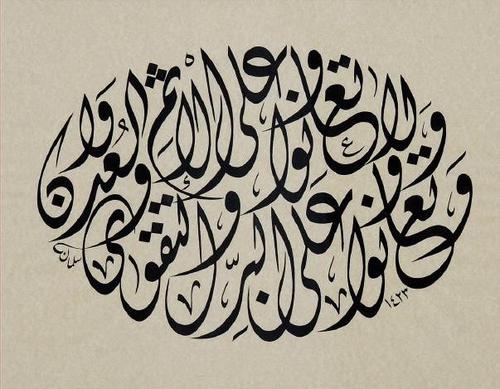 وتعاونوا على البر والتقوى
ولا تعاونوا على الإثم والعدوان
سلمان
١٤٢٣